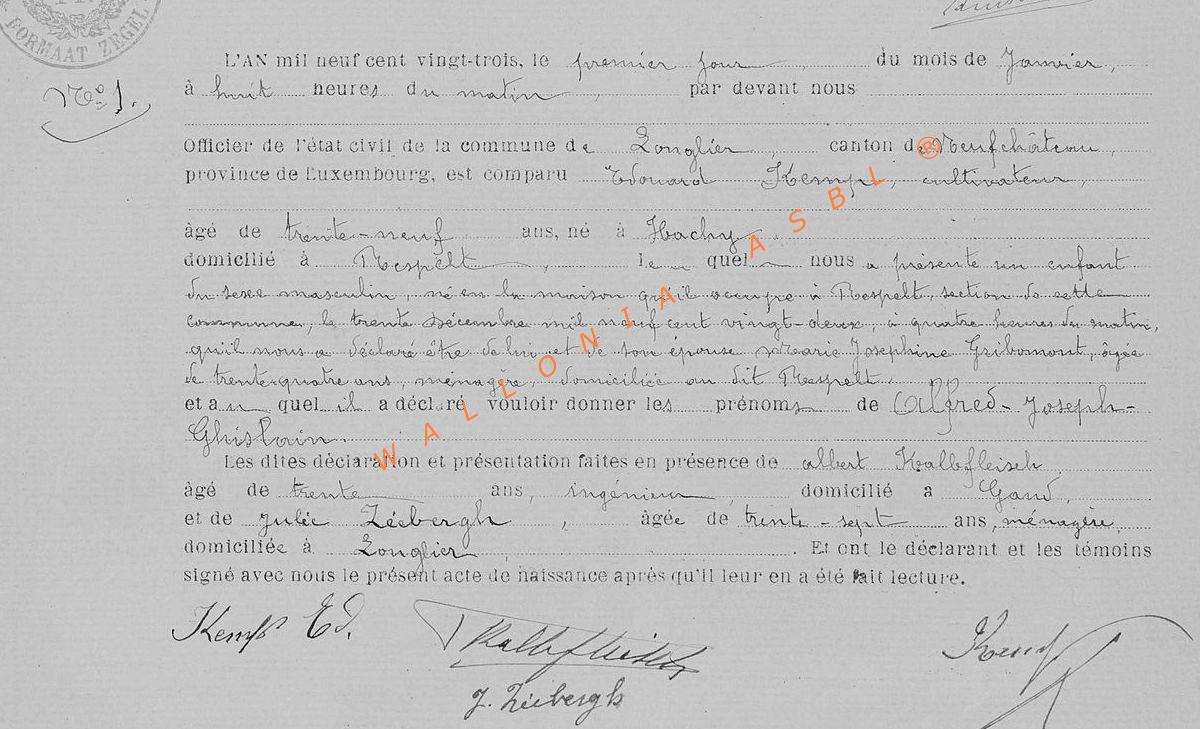 FORMAAT ZEGEL
N° 1.
L'AN mil neuf cent vingt-trois, le premier jour, du mois de Janvier,
à huit heures du matin, par devant nous
Officier de l'état civil de la commune de Longlier, canton de Neufchâteau,
province de Luxembourg, est comparu Edouard Kempf, cultivateur,
âgé de trente-neuf ans, né à Hachy,
domicilié à Respelt, Le quel nous a présenté un enfant
du sexe masculin, né en la maison qu'il occupe à Respelt, section de cette
commune, le trente décembre mil neuf cent vingt-deux, à quatre heures du matin,
qu'il nous a déclaré être de lui et de son épouse Marie Josephine Gribomont, âgée
de trente-quatre ans, ménagère, domiciliée au dit Respelt.
et au quel il a déclaré vouloir donner les prénoms de Alfred-Joseph-
Ghislain.
Les dites déclaration et présentation faites en présence de Albert Kalbfleisch
âgé de trente ans, ingénieur, domicilié à Gand,
et de Julie Zéebergh, âgée de trente-sept ans, ménagère,
domiciliée à Longlier, . Et ont le déclarant et les témoins
signé avec nous le présent acte de naissance après qu'il leur en a été fait lecture.
Kempf Ed. Kalbfleisch Kempf
J. Zéebergh
WALLONIA ASBL ®